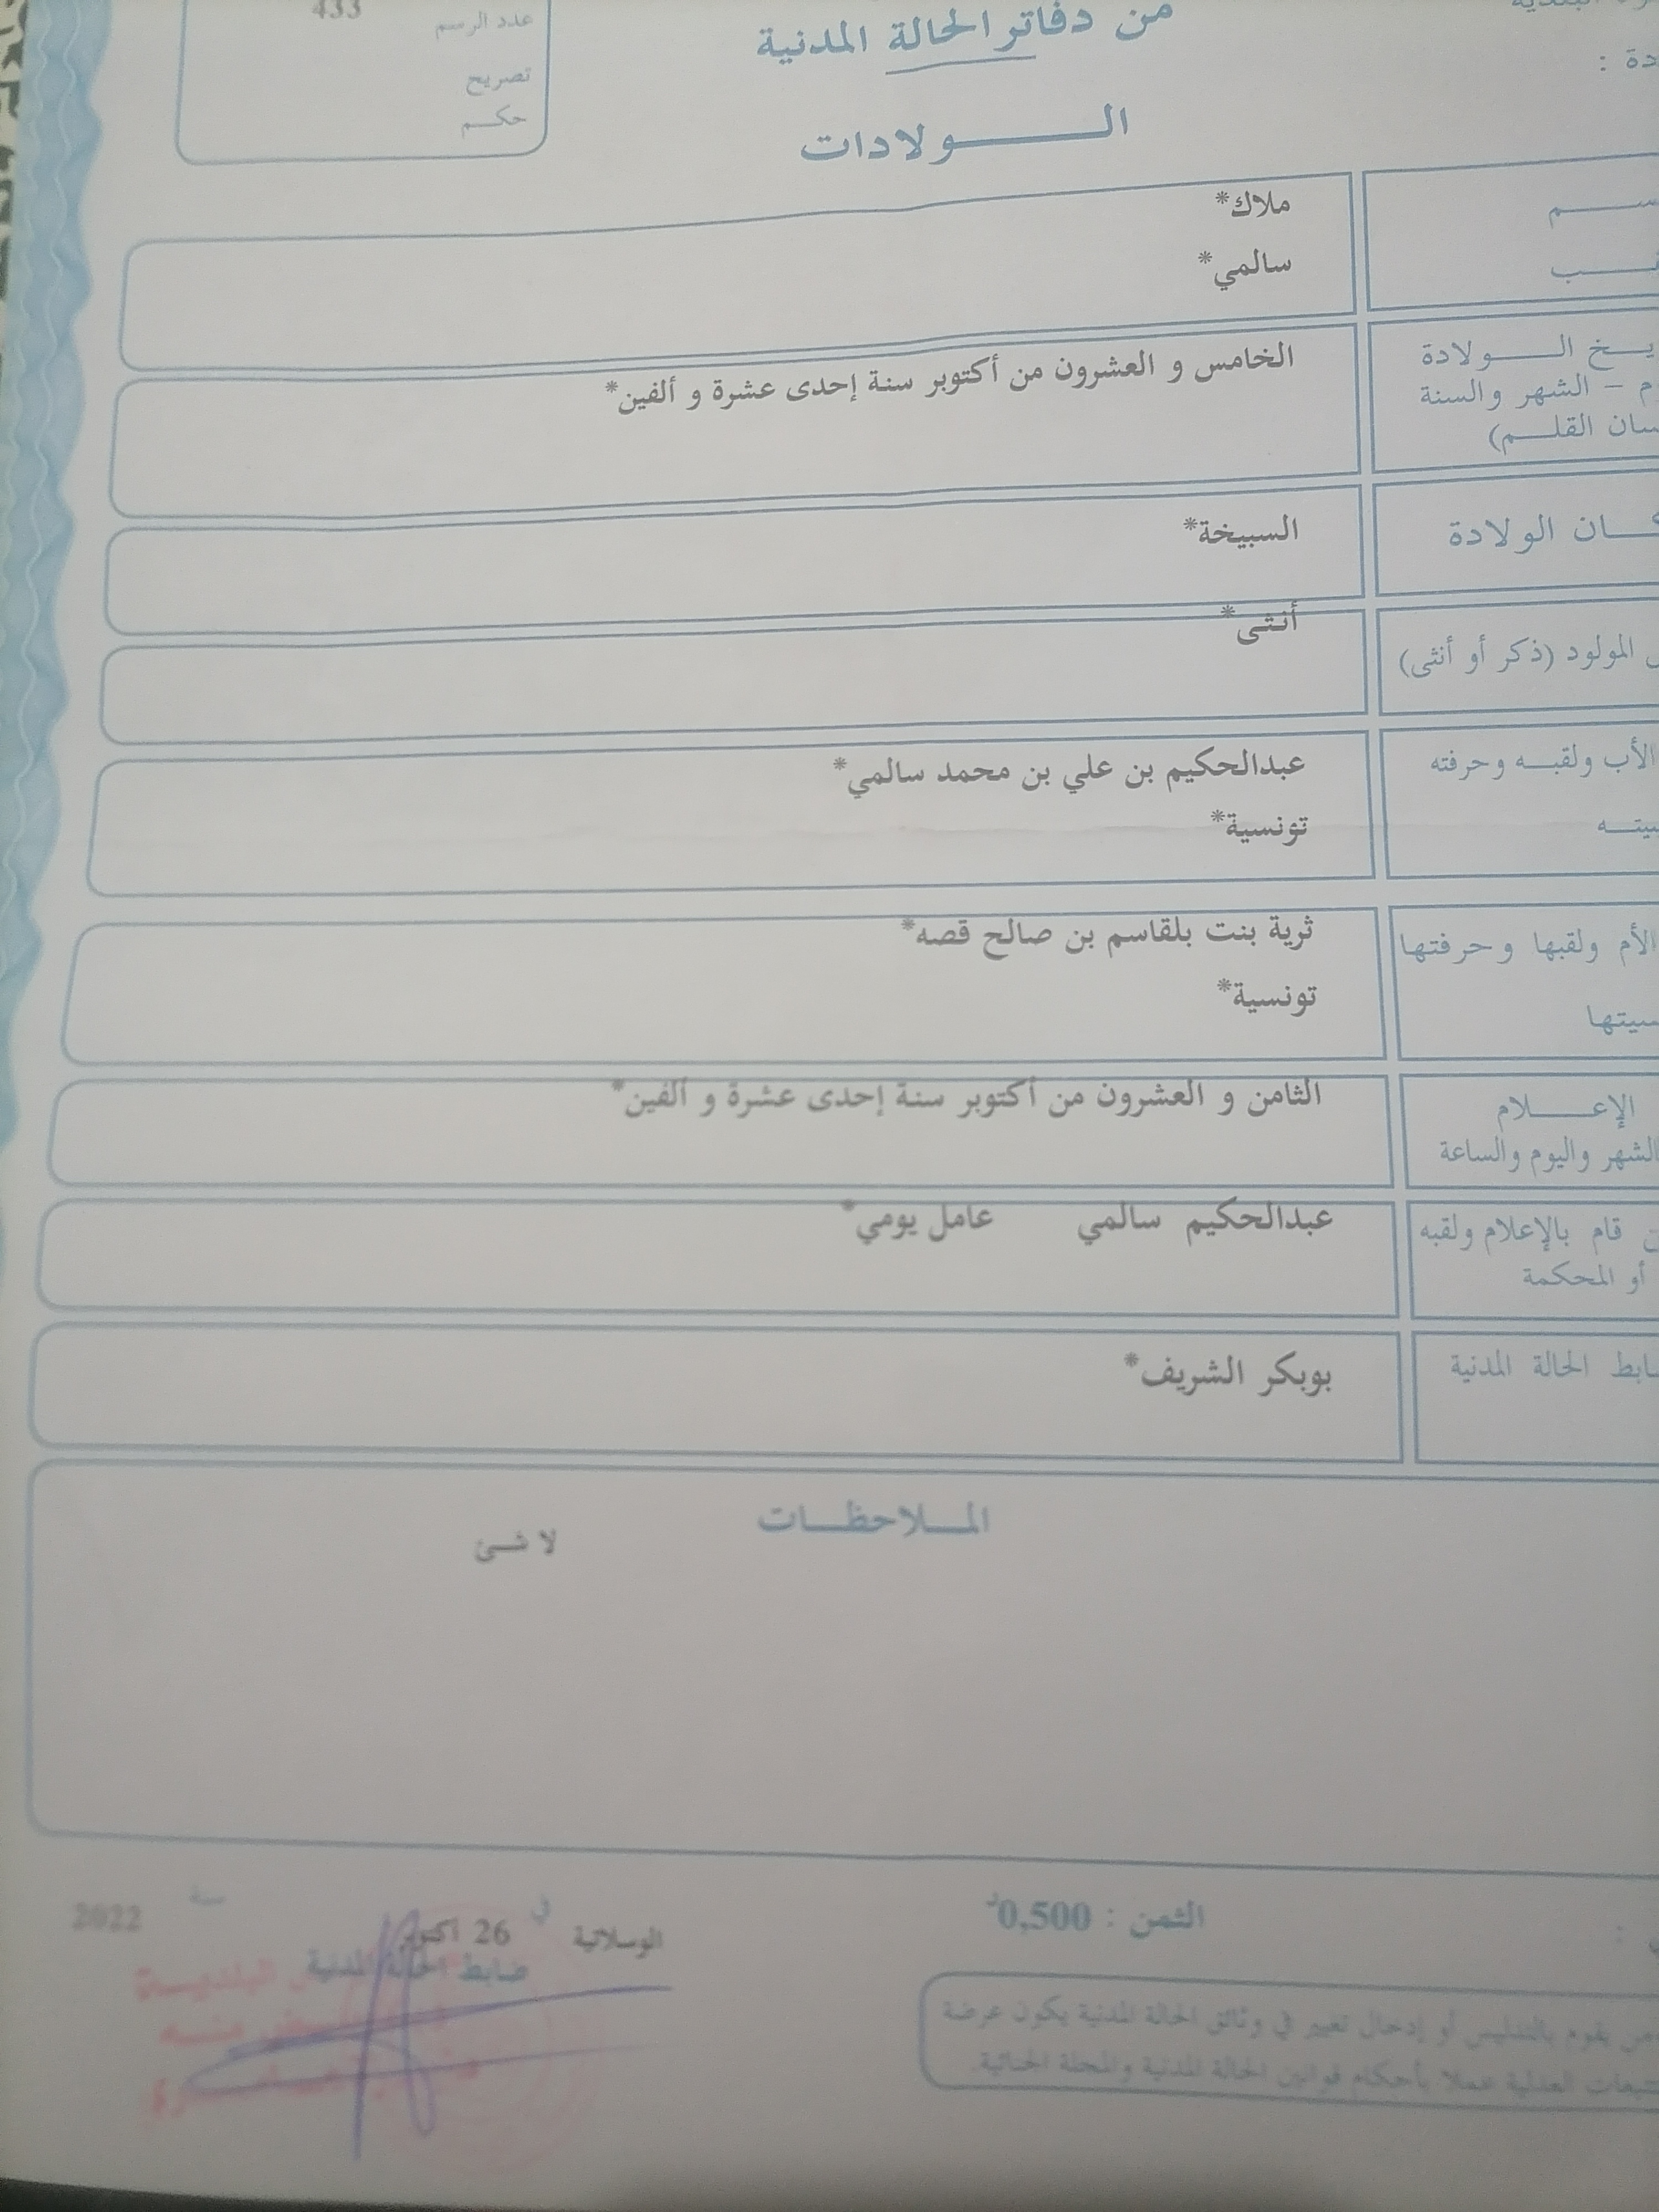 433
عدد الرسم
تصريح
حكـــم
من دفاتر الحالة المدنية
الـــــــولادات
ملاك*
سالمي*
الـــــولادة
الخامس و العشرون من أكتوبر سنة إحدى عشرة و ألفين*
– الشهر والسنة
القلـــم)
الولادة
السبيخة*
المولود (ذكر أو أنثى)
أنثى*
الأب ولقبـــه وحرفته
عبدالحكيم بن علي بن محمد سالمي*
تونسية*
الأم ولقبها وحرفتها
ثرية بنت بلقاسم بن صالح قصه*
تونسية*
الإعـــــلام
الثامن و العشرون من أكتوبر سنة إحدى عشرة و ألفين*
الشهر واليوم والساعة
قام بالإعلام ولقبه
عبدالحكيم سالمي عامل يومي*
أو المحكمة
الحالة المدنية
بوبكر الشريف*
المـــلاحظـــات
لا شـئ
الثمن : 0,500د
الوسلاتية في 26 أكتوبر سنة 2022
ضابط الحالة المدنية
من يقوم بالتدليس أو إدخال تغيير في وثائق الحالة المدنية يكون عرضة
العدلية عملا بأحكام قوانين الحالة المدنية والمجلة الجنائية.